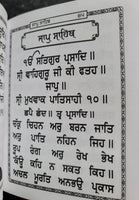 ਜਾਪੁ ਸਾਹਿਬ
ਜਾਪੁ ਸਾਹਿਬ
ੴ ਸਤਿਗੁਰ ਪ੍ਰਸਾਦਿ॥
ਸ੍ਰੀ ਵਾਹਿਗੁਰੂ ਜੀ ਕੀ ਫਤਹ॥
ਜਾਪੁ॥
ਸ੍ਰੀ ਮੁਖਵਾਕ ਪਾਤਿਸਾਹੀ ੧੦॥
ਛਪੈ ਛੰਦ॥ ਤ੍ਵ ਪ੍ਰਸਾਦਿ॥
ਚਕ੍ਰ ਚਿਹਨ ਅਰੁ ਬਰਨ ਜਾਤਿ
ਅਰੁ ਪਾਤਿ ਨਹਿਨ ਜਿਹ॥
ਰੂਪ ਰੰਗ ਅਰੁ ਰੇਖ ਭੇਖ
ਕੋਊ ਕਹਿ ਨ ਸਕਤ ਕਿਹ॥
ਅਚਲ ਮੂਰਤਿ ਅਨਭਉ ਪ੍ਰਕਾਸ